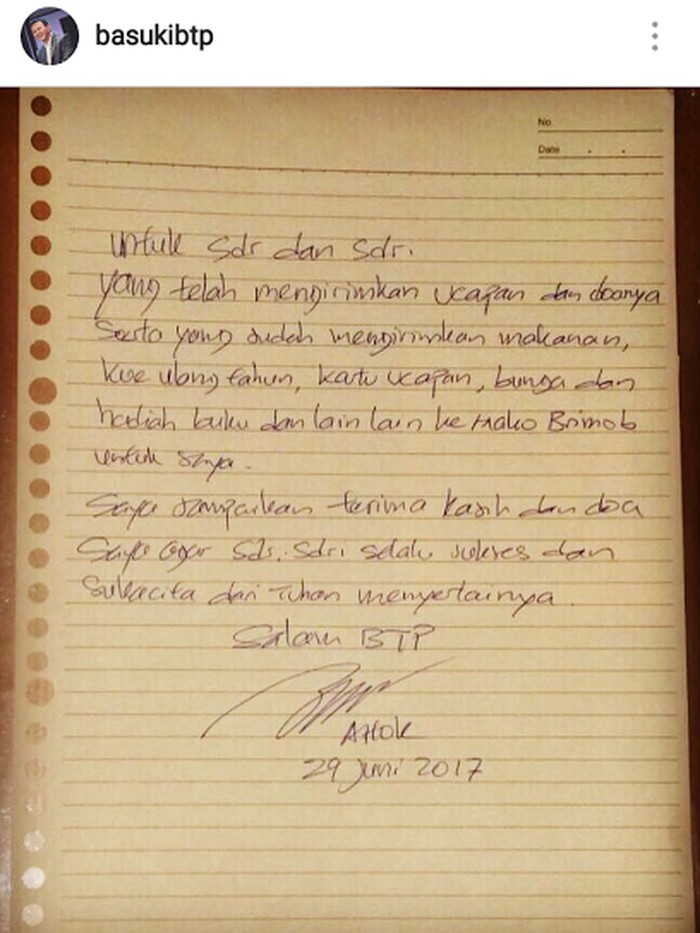 basukibtp
No
Date . .
Untuk Sdr dan Sdr.
yang telah mengirimkan ucapan dan doanya
Serta yang sudah mengirimkan makanan,
kue ulang tahun, kartu ucapan, bunga dan
hadiah buku dan lain lain ke Mako Brimob
untuk saya.
Saya sampaikan terima kasih dan doa
Saya agar Sdr. Sdri selalu sukses dan
Sukacita dari Tuhan menyertainya.
Salam BTP
Ahok
29 Juni 2017